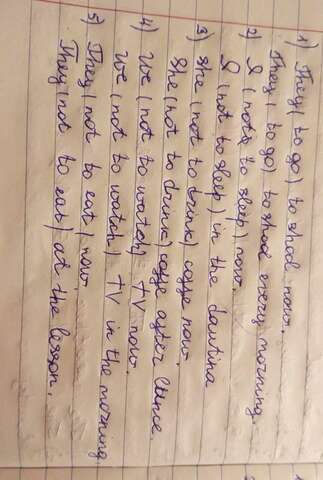 1) They (to go) to shool now.
They (to go) to shool every morning.
2) I (not to sleep) now.
I (not to sleep) in the dautina
3) She (not to drink) coffe now.
She (not to drink) coffe after lance.
4) We (not to watch) TV now.
We (not to watch) TV in the morning.
5) They (not to eat) now.
They (not to eat) at the lesson.